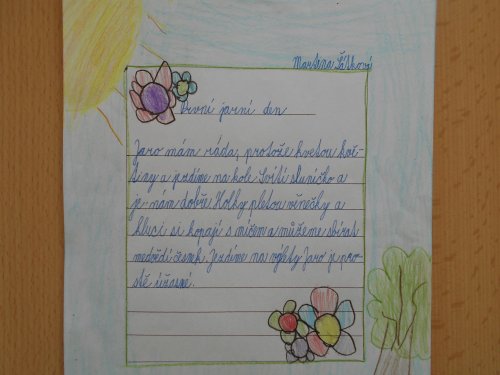 Martina Šišková
První jarní den
Jaro mám ráda, protože kvetou kvě-
tiny a jezdíme na kole. Svítí sluníčko a
je nám dobře. Holky pletou věnečky a
kluci si kopají s míčem a můžeme sbírat
medvědí česnek. Jezdíme na výlety. Jaro je pro-
stě úžasné.